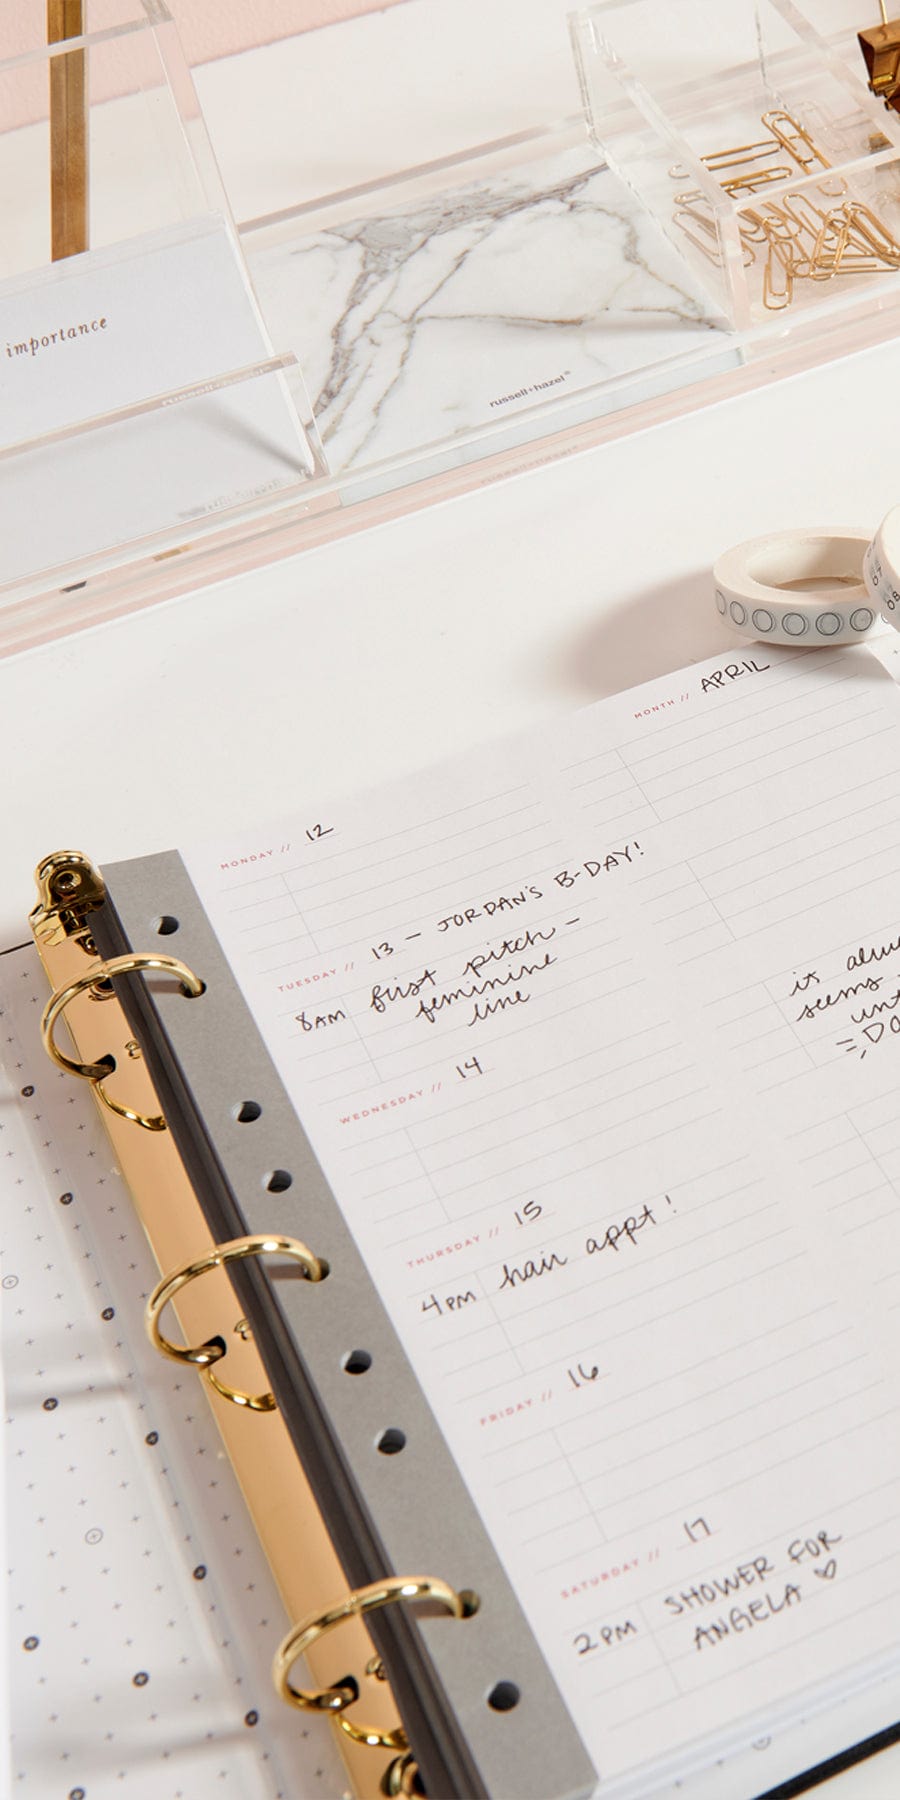 importance
russell+hazel®
MONTH // APRIL
MONDAY // 12
TUESDAY // 13 – JORDAN'S B-DAY!
8AM first pitch –
feminine
line
WEDNESDAY // 14
it
seems
THURSDAY // 15
4PM hair appt!
FRIDAY // 16
SATURDAY // 17
2PM SHOWER FOR
ANGELA ♡